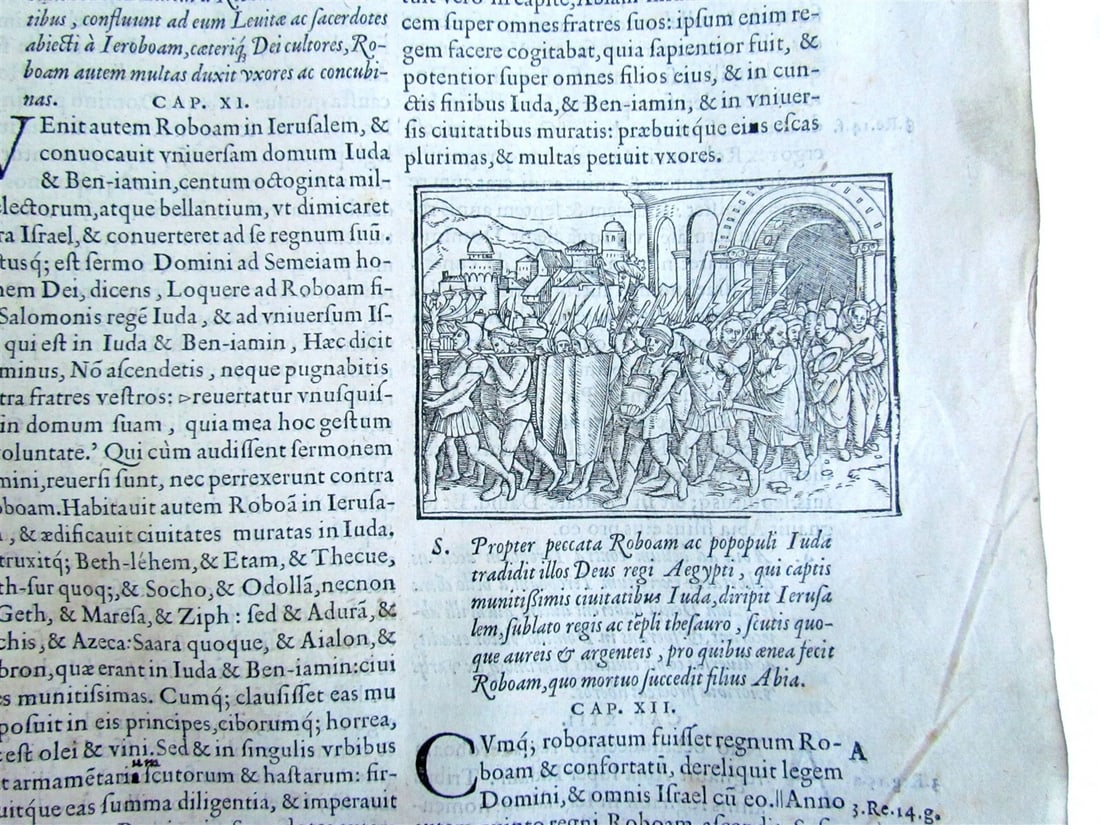 tibus, confluunt ad eum Leuitæ ac sacerdotes
abiecti à Ieroboam, cæteriq́; Dei cultores, Ro-
boam autem multas duxit vxores ac concubi-
nas.
CAP. XI.
VEnit autem Roboam in Ierusalem, &
conuocauit vniuersam domum Iuda
& Ben-iamin, centum octoginta mil-
electorum, atque bellantium, vt dimicaret
ra Israel, & conuerteret ad se regnum suũ.
tusq́; est sermo Domini ad Semeiam ho-
nem Dei, dicens, Loquere ad Roboam fi-
Salomonis regẽ Iuda, & ad vniuersum Is-
qui est in Iuda & Ben-iamin, Hæc dicit
minus, Nõ ascendetis, neque pugnabitis
tra fratres vestros: ▹reuertatur vnusquis-
in domum suam, quia mea hoc gestum
voluntate.’ Qui cùm audissent sermonem
mini, reuersi sunt, nec perrexerunt contra
oboam. Habitauit autem Roboã in Ierusa-
, & ædificauit ciuitates muratas in Iuda.
truxitq́; Beth-léhem, & Etam, & Thecue,
th-sur quoq;, & Socho, & Odollã, necnon
Geth, & Maresa, & Ziph: sed & Adurã, &
chis, & Azeca: Saara quoque, & Aialon, &
bron, quæ erant in Iuda & Ben-iamin: ciui
s munitissimas. Cumq́; clausisset eas mu
posuit in eis principes, ciborumq́; horrea,
est olei & vini. Sed & in singulis vrbibus
t armamẽtaria scutorum & hastarum: fir-
uitque eas summa diligentia, & imperauit
cem super omnes fratres suos: ipsum enim re-
gem facere cogitabat, quia sapientior fuit, &
potentior super omnes filios eius, & in cun-
ctis finibus Iuda, & Ben-iamin, & in vniuer-
sis ciuitatibus muratis: præbuitq́ue eius escas
plurimas, & multas petiuit vxores.
S. Propter peccata Roboam ac popopuli Iuda
tradidit illos Deus regi Aegypti, qui captis
munitißimis ciuitatibus Iuda, diripit Ierusa
lem, sublato regis ac tẽpli thesauro, scutis quo-
que aureis & argenteis, pro quibus ænea fecit
Roboam, quo mortuo succedit filius Abia.
CAP. XII.
CVmq́; roboratum fuisset regnum Ro- A
boam & confortatũ, dereliquit legem
Domini, & omnis Israel cũ eo. ||Anno 3.Re.14.g.